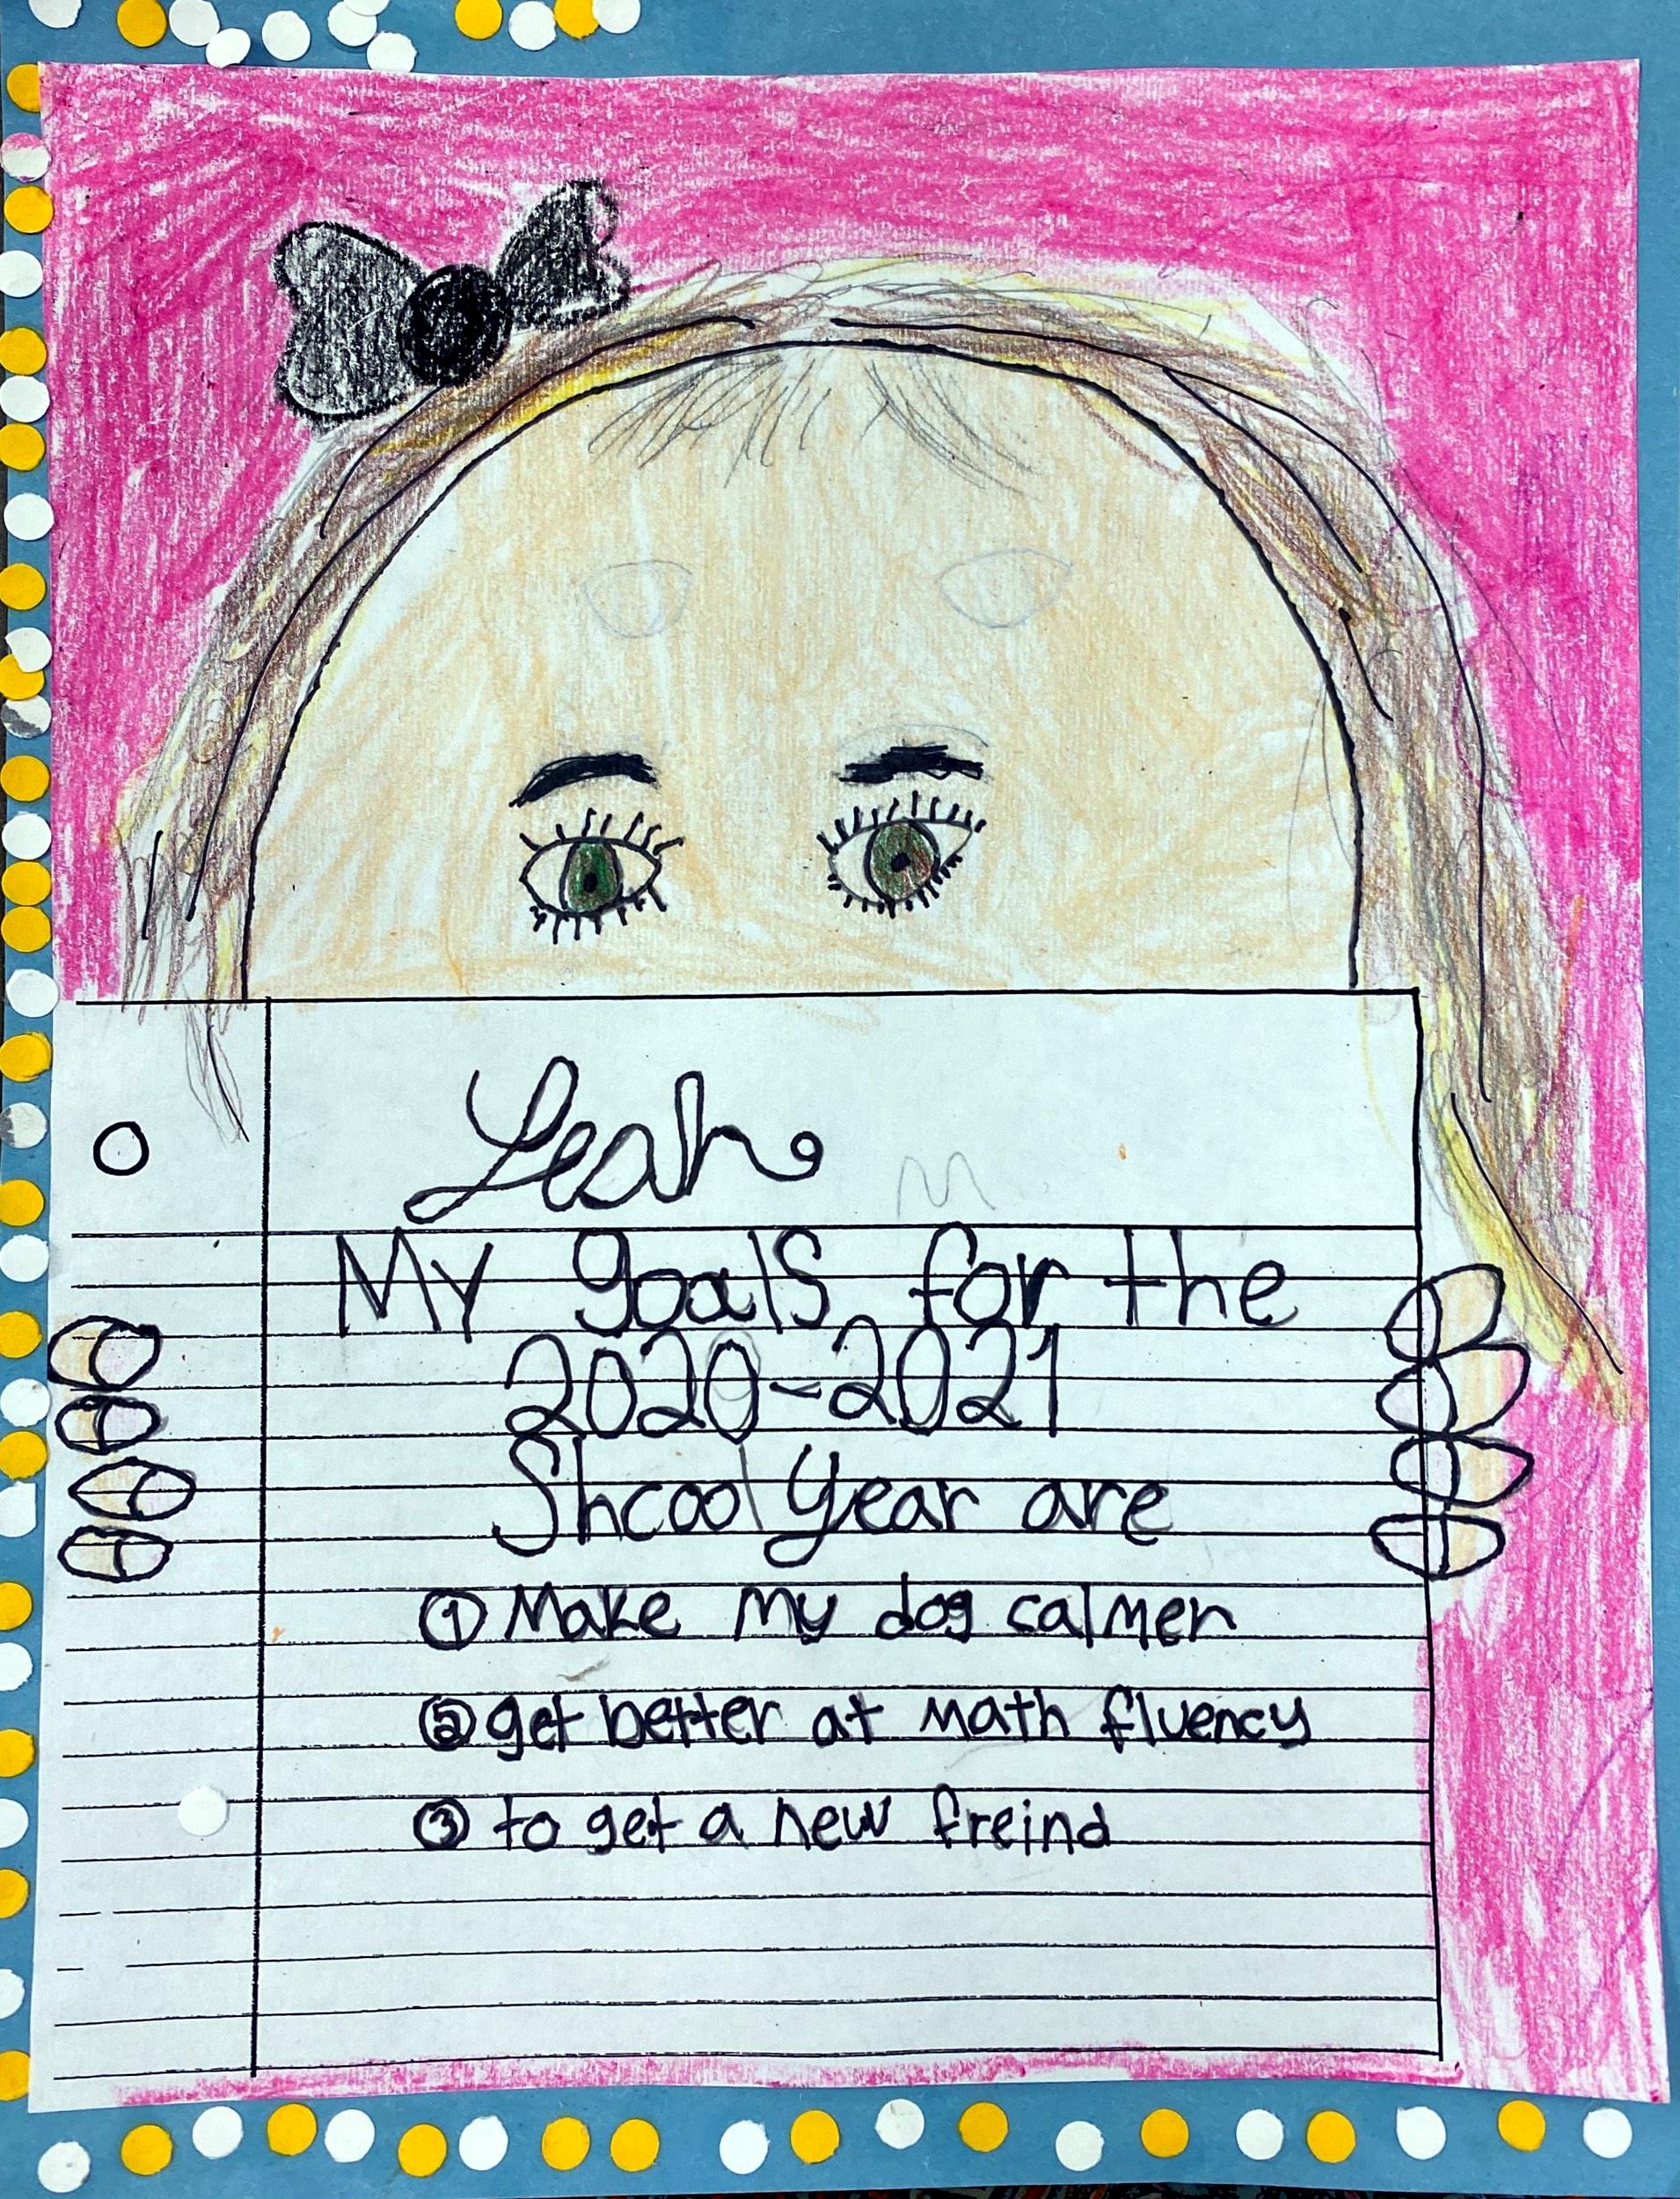 Leah M
My goals for the
2020-2021
Shcool year are
① Make my dog calmer
② get better at math fluency
③ to get a new freind